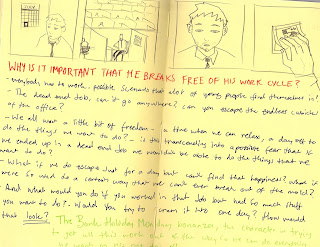 WHY IS IT IMPORTANT THAT HE BREAKS FREE OF HIS WORK CYCLE?
- everybody has to work, possible scenario that alot of young people find themselves in!
- The dead end job, can it go anywhere? can you escape the endless
of the office?
- We all want a little bit of freedom - a time when we can relax, a day off to
do the things we want to do? - is this transcending into a possible fear that if
we ended up in a dead end job we wouldn't be able to do the things that we
want to do?
- What if we do escape just for a day but can't find that happiness? what if
were so used to a certain way that we can't ever break out of the mold?
And what would you do if you worked in that job but had so much stuff
you want to do? Would you try to cram it into one day? How would
that look? The Bank Holiday Monday bonanza, the character is trying
to get all this work out of the way so he can do